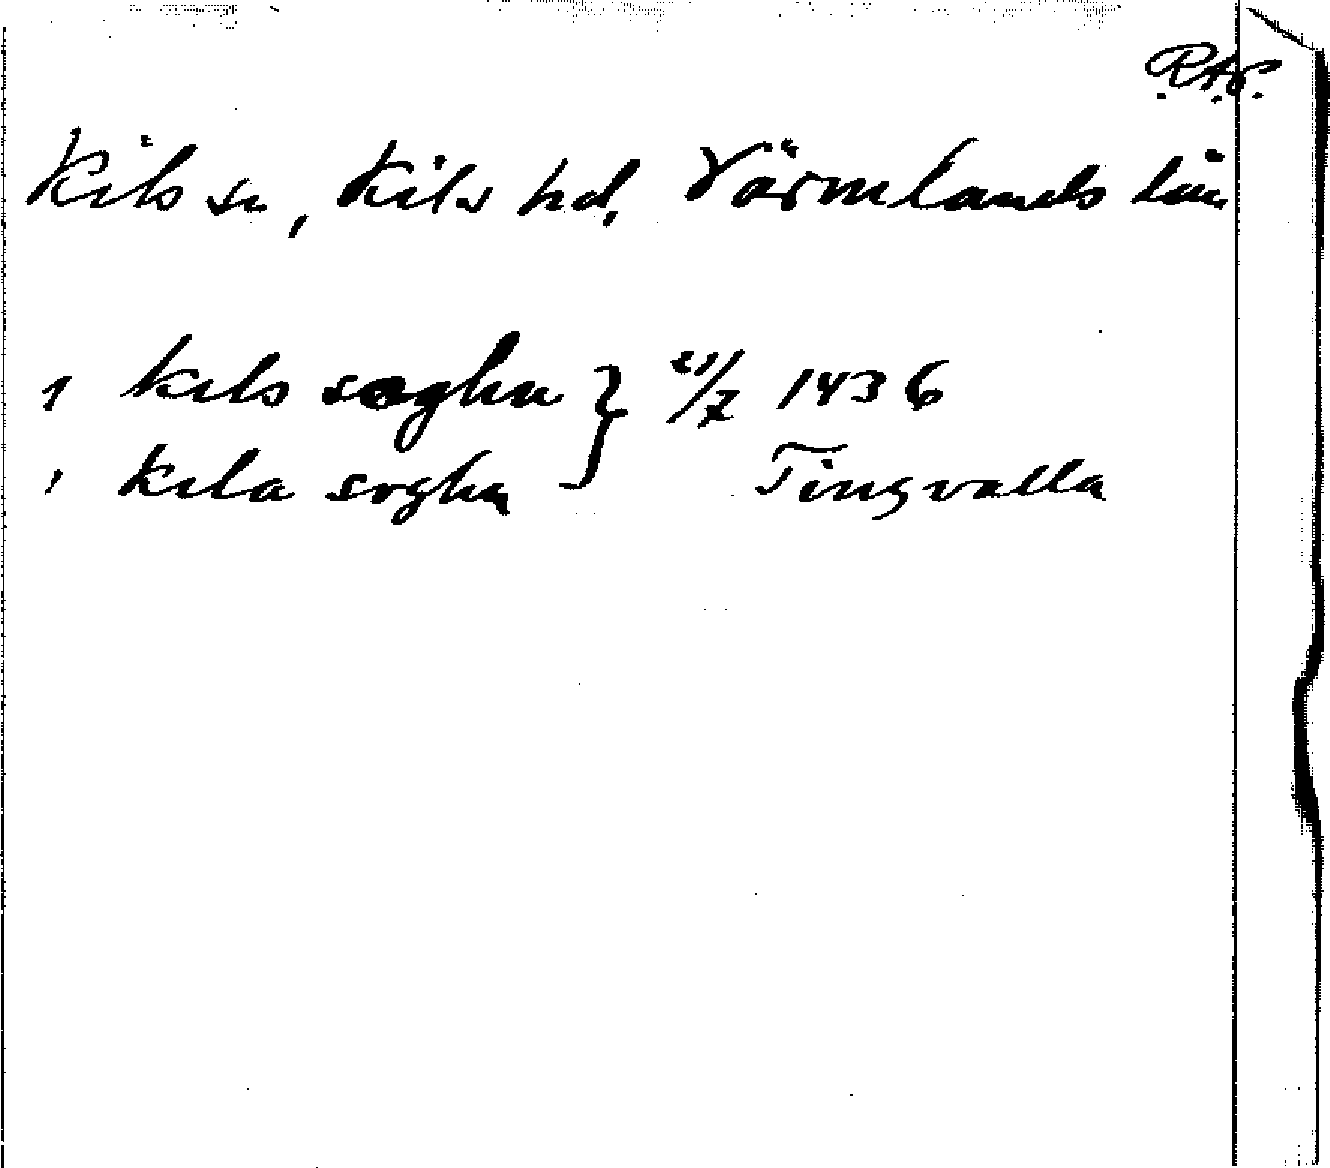 R.A.P.
Kils sn, Kils hd, Värmlands län
ı Kils soghn } 21/7 1436
ı Kila soghn Tingvalla